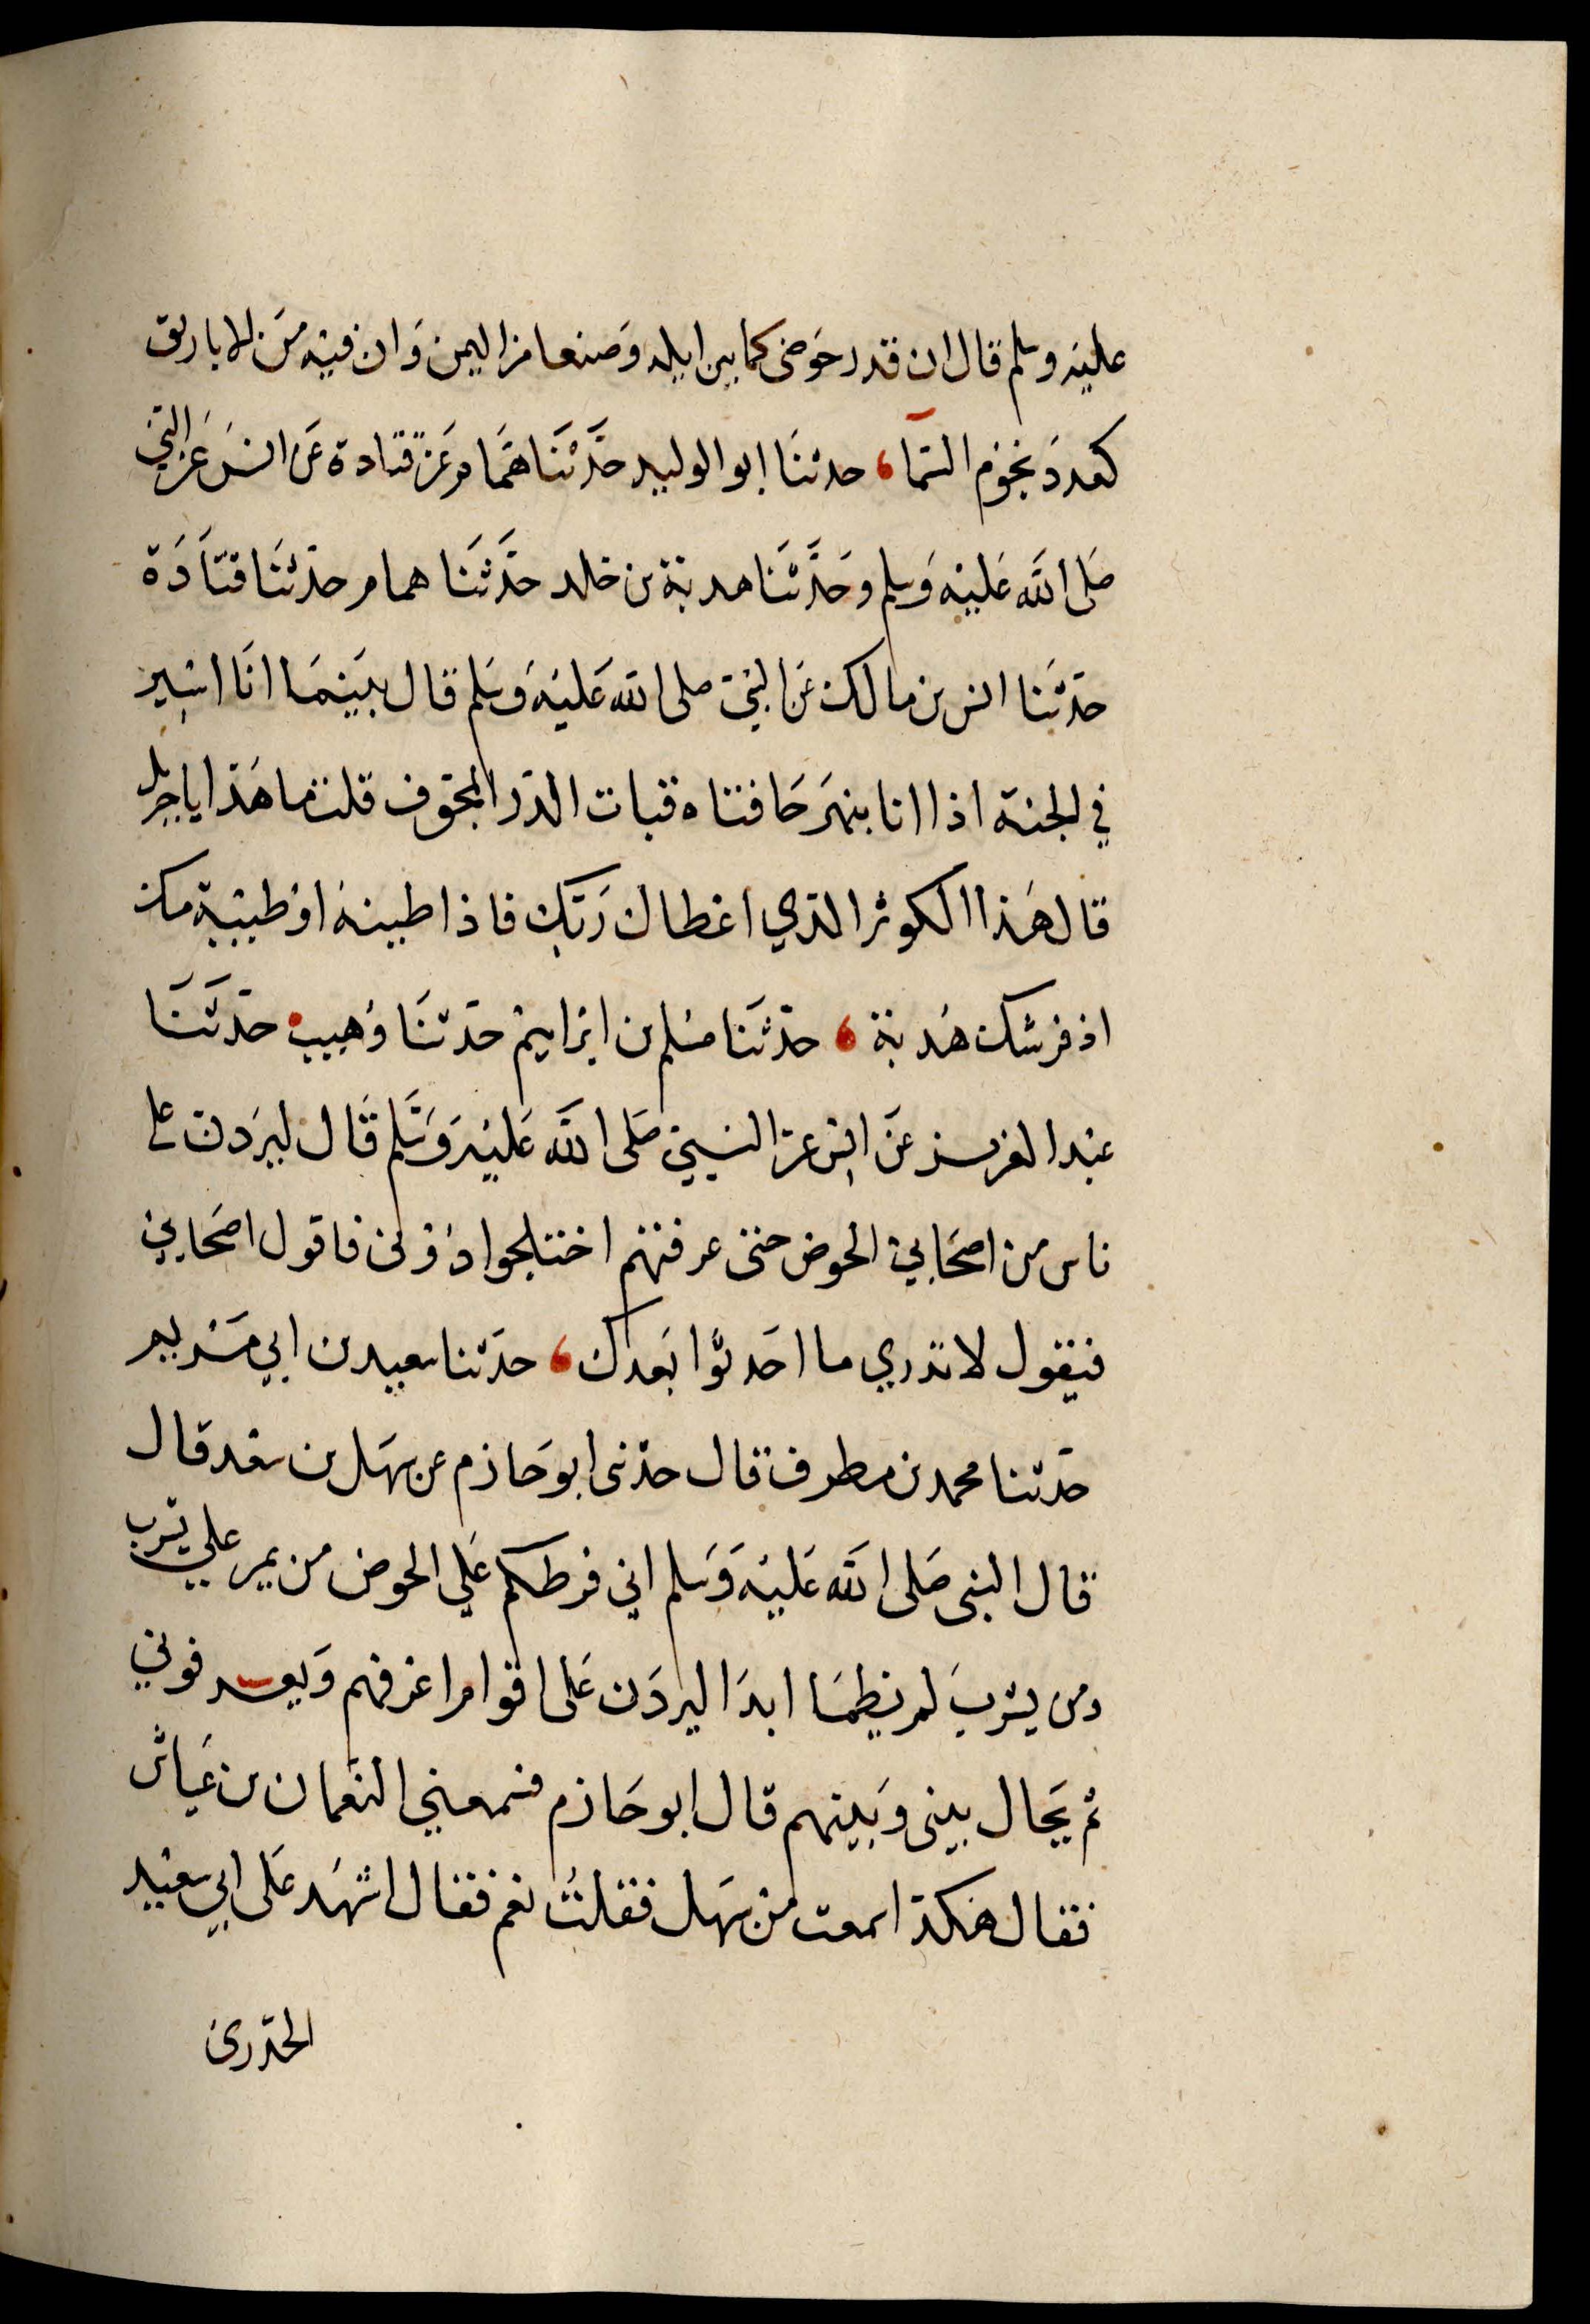 عليه وسلم قال ان قدر حوضى كما بين ايله وصنعا من اليمن وان فيه من الاباريق
كعدد نجوم السما، حدثنا ابو الوليد حدثنا همام عن قتادة عن انس عن النبي
صلى الله عليه وسلم وحدثنا هدبة بن خلد حدثنا همام حدثنا قتادة
حدثنا انس بن مالك عن النبي صلى الله عليه وسلم قال بينما انا اسير
في الجنة اذا انا بنهر حافتاه قباب الدر المجوف قلت ما هذا يا جبريل
قال هذا الكوثر الذي اعطاك ربك فاذا طينه او طيبه مسك
اذفر شك هدبة، حدثنا مسلم بن ابراهيم حدثنا وهيب حدثنا
عبد العزيز عن انس عن النبي صلى الله عليه وسلم قال ليردن على
ناس من اصحابي الحوض حتى عرفتهم اختلجوا دونى فاقول اصحابي
فيقول لا تدري ما احدثوا بعدك، حدثنا سعيد بن ابي مريم
حدثنا محمد بن مطرف قال حدثنى ابو حازم عن سهل بن سعد قال
قال النبى صلى الله عليه وسلم اني فرطكم علي الحوض من يمر علي يشرب
ومن يشرب لم يظما ابدا ليردن على اقوام اعرفهم ويعرفوني
ثم يحال بينى وبينهم قال ابو حازم فسمعني النعمان بن عياش
فقال هكذا سمعت من سهل فقلت نعم فقال اشهد على ابي سعيد
الخدرى